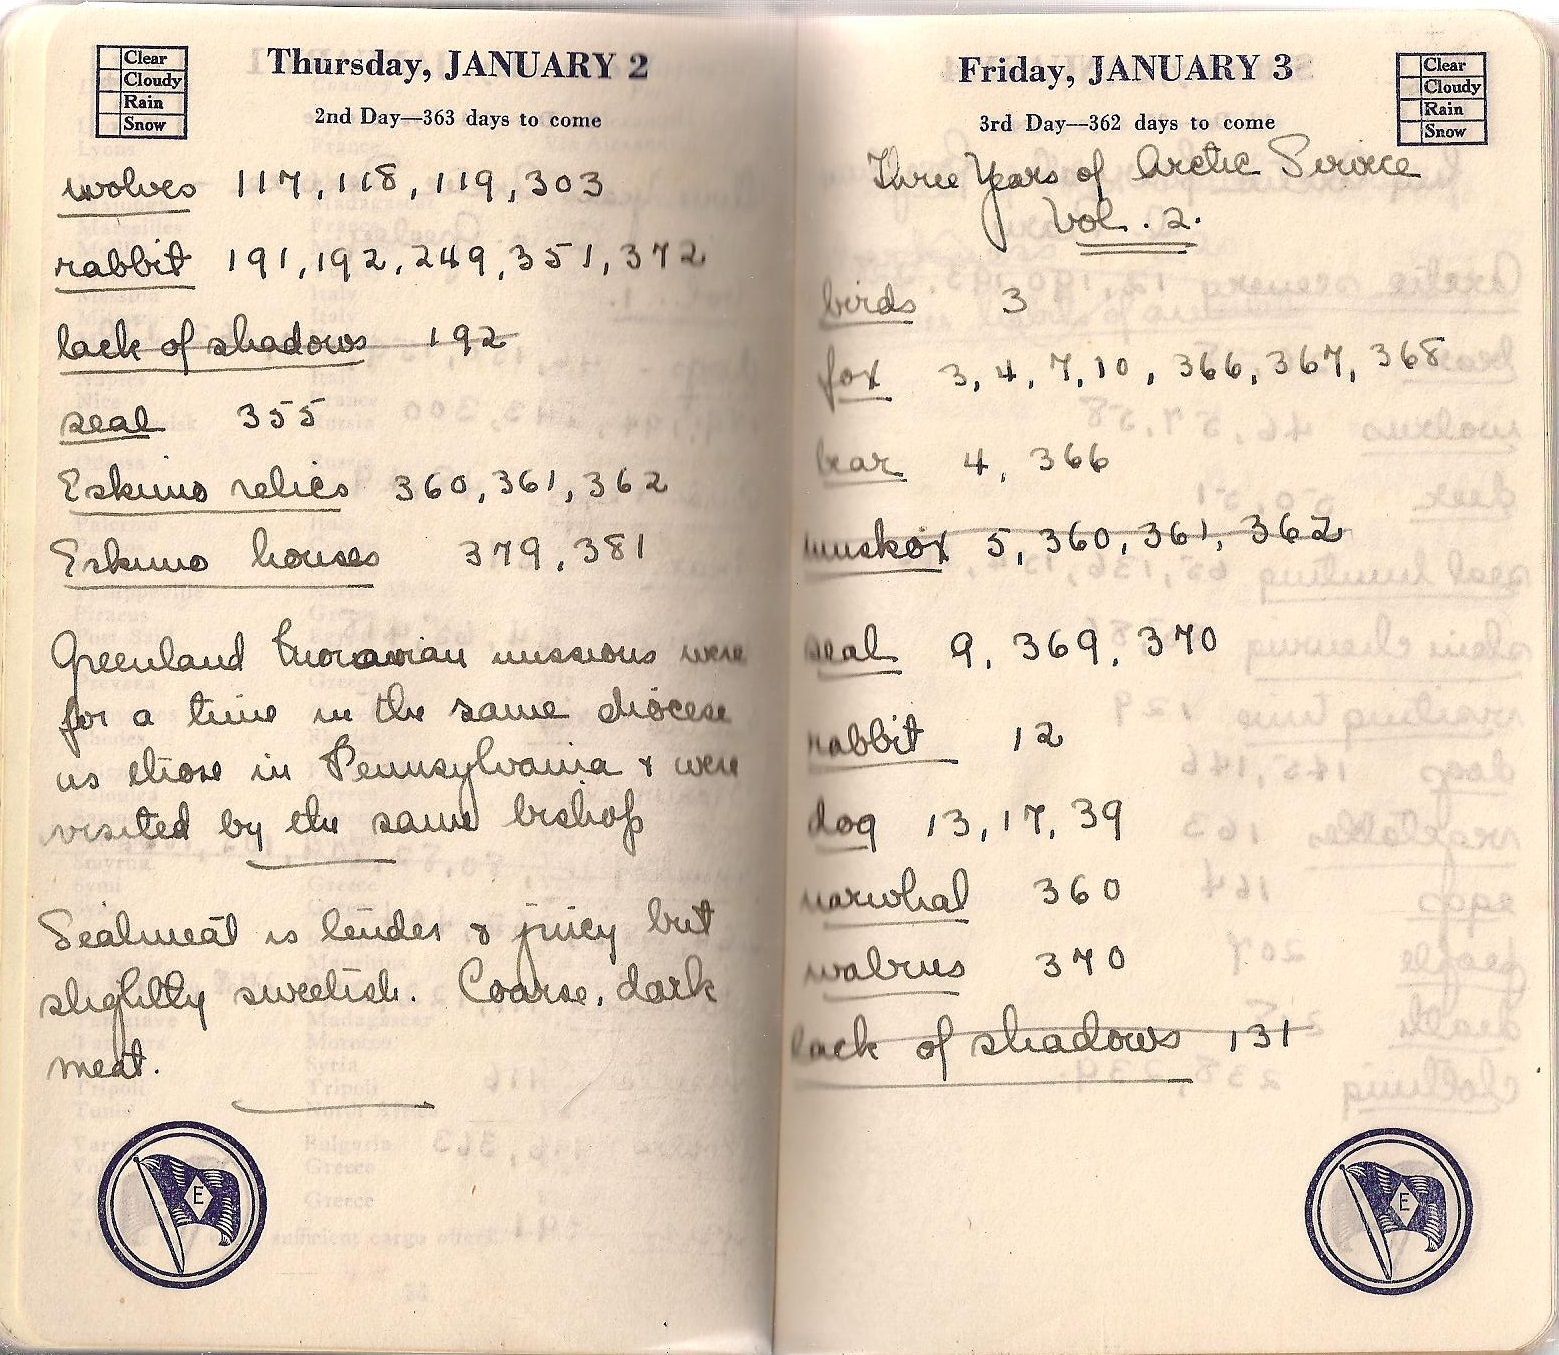 Clear
Cloudy
Rain
Snow
Thursday, JANUARY 2
2nd Day—363 days to come
wolves 117, 118, 119, 303
rabbit 191, 192, 249, 351, 372
lack of shadows 192
seal 355
Eskimo relics 360, 361, 362
Eskimo houses 379, 381
Greenland Moravian missions were
for a time in the same diocese
as those in Pennsylvania & were
visited by the same bishop
Sealmeat is tender & juicy but
slightly sweetish. Coarse, dark
meat.
E
Friday, JANUARY 3
3rd Day—362 days to come
Clear
Cloudy
Rain
Snow
Three Years of Arctic Service
Vol. 2.
birds 3
fox 3, 4, 7, 10, 366, 367, 368
bear 4, 366
muskox 5, 360, 361, 362
seal 9, 369, 370
rabbit 12
dog 13, 17, 39
narwhal 360
walrus 370
lack of shadows 131
E